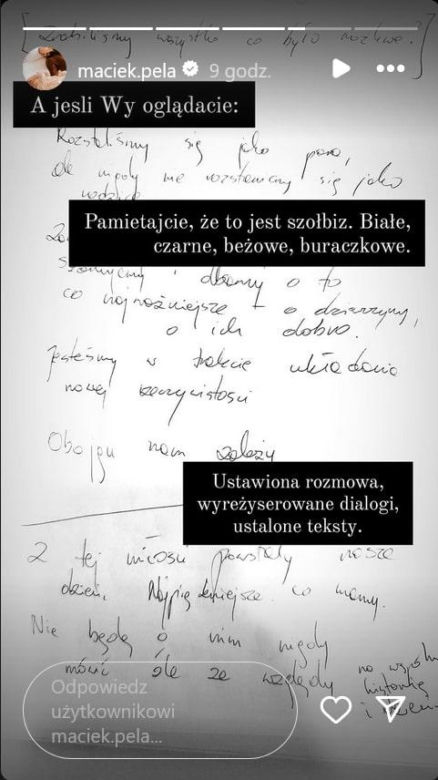 [ Zrobiliśmy wszystko co było możliwe? ]
maciek.pela 9 godz.
A jesli Wy oglądacie:
Rozstaliśmy się jako para,
ale nigdy nie rozstaniemy się jako
Pamietajcie, że to jest szołbiz. Białe,
czarne, beżowe, buraczkowe.
i dbamy o to
co najważniejsze - o dziewczyny,
o ich dobro.
Jesteśmy w trakcie układania
nowej rzeczywistości
Obojgu nam zależy
Ustawiona rozmowa,
wyreżyserowane dialogi,
ustalone teksty.
Z tej miłości powstały nasze
dzieci. Najpiękniejsze co mamy.
Nie będę o nim nigdy
mówić źle ze względu na wspólną
historię
i
Odpowiedz
użytkownikowi
maciek.pela...